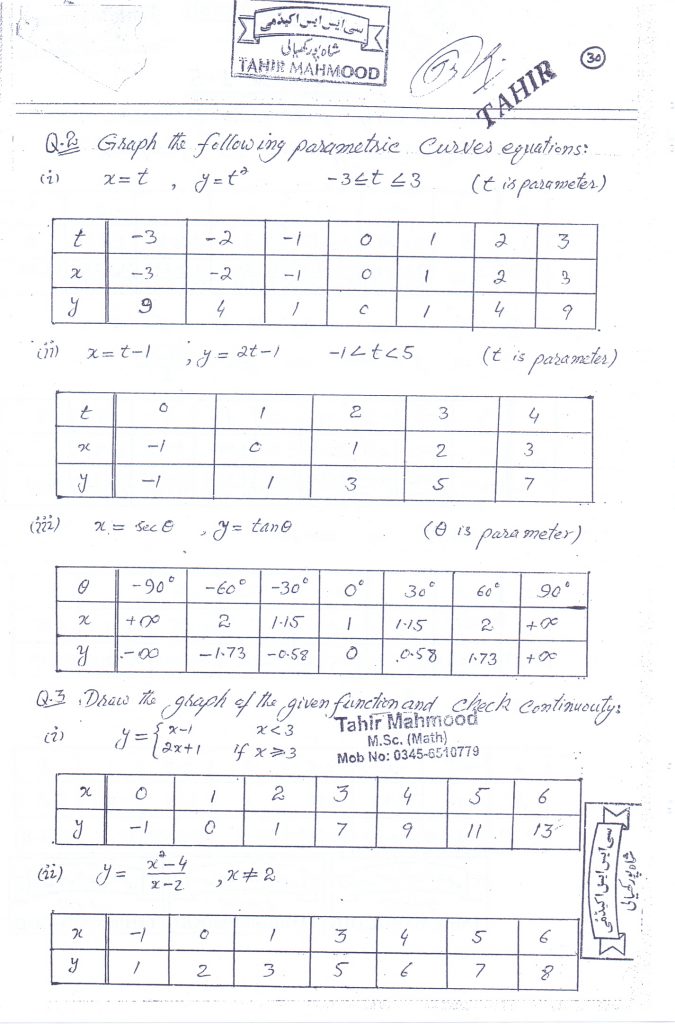 سی ایس ایس اکیڈمی
شاہ پور کھیالی
TAHIR MAHMOOD
TAHIR
30
Q.2 Graph the following parametric Curves equations:
(i) x = t , y = t² -3 ≤ t ≤ 3 (t is parameter)
t -3 -2 -1 0 1 2 3
x -3 -2 -1 0 1 2 3
y 9 4 1 0 1 4 9
(ii) x = t-1 , y = 2t-1 -1 < t < 5 (t is parameter)
t 0 1 2 3 4
x -1 0 1 2 3
y -1 1 3 5 7
(iii) x = sec θ , y = tan θ (θ is parameter)
θ -90° -60° -30° 0° 30° 60° 90°
x +∞ 2 1.15 1 1.15 2 +∞
y -∞ -1.73 -0.58 0 0.58 1.73 +∞
Q.3 Draw the graph of the given function and check Continuouty:
(i) y = { x-1 x < 3
2x+1 if x ≥ 3
Tahir Mahmood
M.Sc. (Math)
Mob No: 0345-6510779
x 0 1 2 3 4 5 6
y -1 0 1 7 9 11 13
(ii) y = x²-4 / x-2 , x ≠ 2
x -1 0 1 3 4 5 6
y 1 2 3 5 6 7 8
سی ایس ایس اکیڈمی
شاہ پور کھیالی